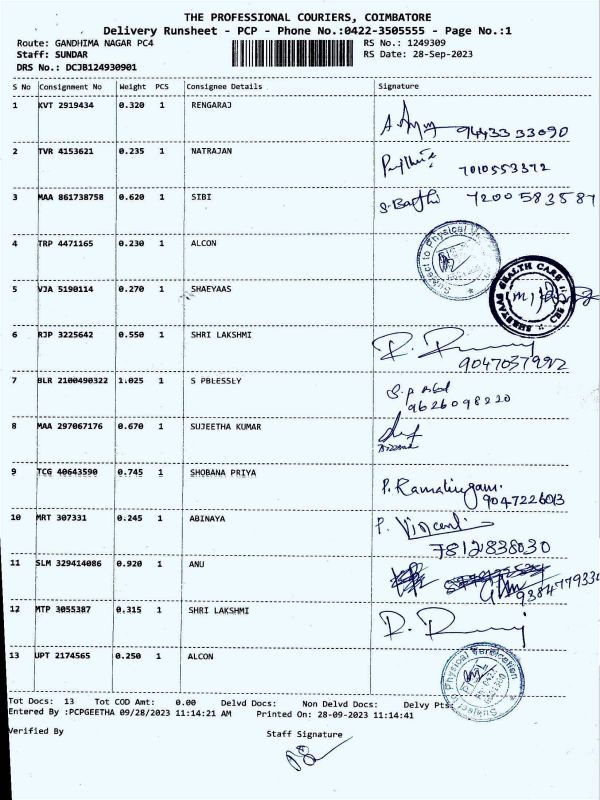 THE PROFESSIONAL COURIERS, COIMBATORE
Delivery Runsheet - PCP - Phone No.:0422-3505555 - Page No.:1
Route: GANDHIMA NAGAR PC4 RS No.: 1249309
Staff: SUNDAR RS Date: 28-Sep-2023
DRS No.: DCJB124930901
S No Consignment No Weight PCS Consignee Details Signature
1 KVT 2919434 0.320 1 RENGARAJ
9443333090
2 TVR 4153621 0.235 1 NATRAJAN
7010553372
3 MAA 861738758 0.620 1 SIBI
7200583587
4 TRP 4471165 0.230 1 ALCON
Subject to Physical
5 VJA 5190114 0.270 1 SHAEYAAS
HEALTH CARE
6 RJP 3225642 0.550 1 SHRI LAKSHMI
9047037992
7 BLR 2100490322 1.025 1 S PBLESSLY
9626098220
8 MAA 297067176 0.670 1 SUJEETHA KUMAR
9 TCG 40643590 0.745 1 SHOBANA PRIYA
P. Ramalingam.
9047226013
10 MRT 307331 0.245 1 ABINAYA
P. Vincent
7812838030
11 SLM 329414086 0.920 1 ANU
12 MTP 3055387 0.315 1 SHRI LAKSHMI
13 UPT 2174565 0.250 1 ALCON
Subject to Physical Verification
Tot Docs: 13 Tot COD Amt: 0.00 Delvd Docs: Non Delvd Docs: Delvy Pts:
Entered By :PCPGEETHA 09/28/2023 11:14:21 AM Printed On: 28-09-2023 11:14:41
Verified By Staff Signature